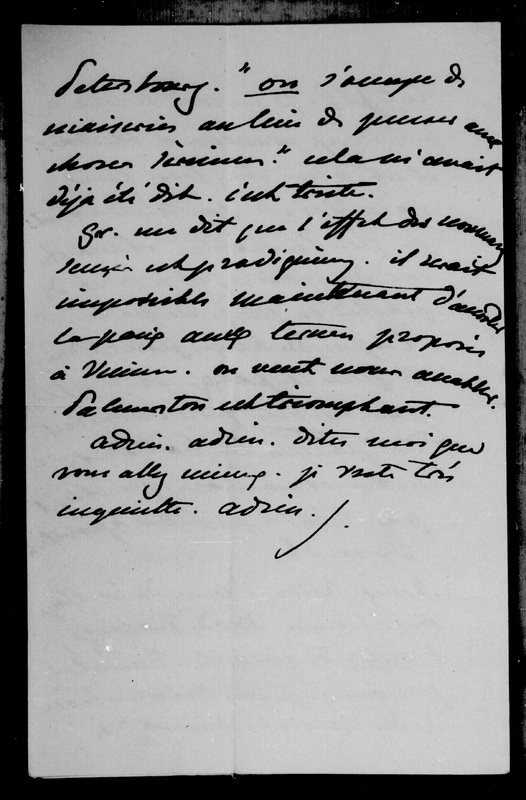 Petersbourg. "on s'occupe de
niaiseries au lieu de penser aux
choses sérieuses." cela m'avait
déja été dit. c'est triste.
Gr. me dit que l'effet des nouvelles
est prodigieux. il serait
impossible maintenant d'accepter
la paix aux termes proposés
à Vienne. on veut nous accabler.
Palmerston est triomphant.
adieu. adieu. dites moi que
vous allez mieux. je reste très
inquiette. adieu.